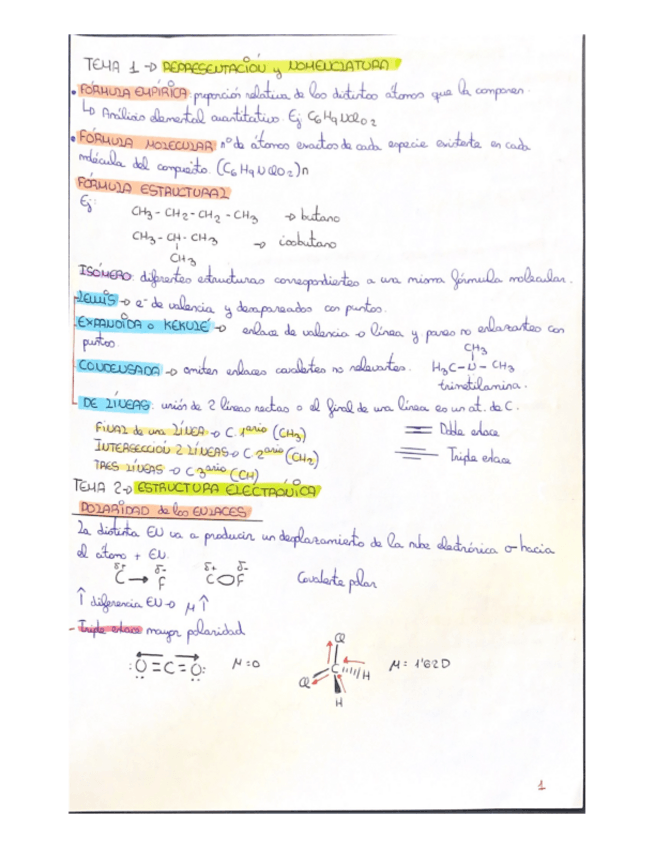 TEMA 1 → REPRESENTACIÓN y NOMENCLATURA
• FÓRMULA EMPÍRICA: proporción relativa de los distintos átomos que la componen.
↳ Análisis elemental cuantitativo. Ej C6H9NClO2
• FÓRMULA MOLECULAR nº de átomos exactos de cada especie existente en cada
molécula del compuesto. (C6H9NClO2)n
FÓRMULA ESTRUCTURAL
Ej:
CH3 - CH2 - CH2 - CH3 → butano
CH3 - CH - CH3 → isobutano
CH3
ISÓMERO: diferentes estructuras correspondientes a una misma fórmula molecular.
LEWIS → e⁻ de valencia y desapareados con puntos.
EXPANDIDA o KEKULÉ → enlace de valencia → línea y pares no enlazantes con
puntos
CH3
CONDENSADA → omiten enlaces covalentes no relevantes. H3C - N - CH3
trimetilamina.
DE LÍNEAS: unión de 2 líneas rectas o el final de una línea es un at. de C.
FINAL de una LÍNEA → C 1ario (CH3)
Doble enlace
INTERSECCIÓN 2 LÍNEAS → C 2ario (CH2)
Triple enlace
TRES LÍNEAS → C 3ario (CH)
TEMA 2 → ESTRUCTURA ELECTRÓNICA
POLARIDAD de los ENLACES
La distinta EN va a producir un desplazamiento de la nube electrónica → hacia
el átomo + EN.
δ+ δ- δ+ δ-
C → F C F Covalente polar
↑ diferencia EN → μ ↑
- Triple enlace mayor polaridad
:O=C=O: μ = 0
Cl
Cl C H μ = 1'62D
H
1